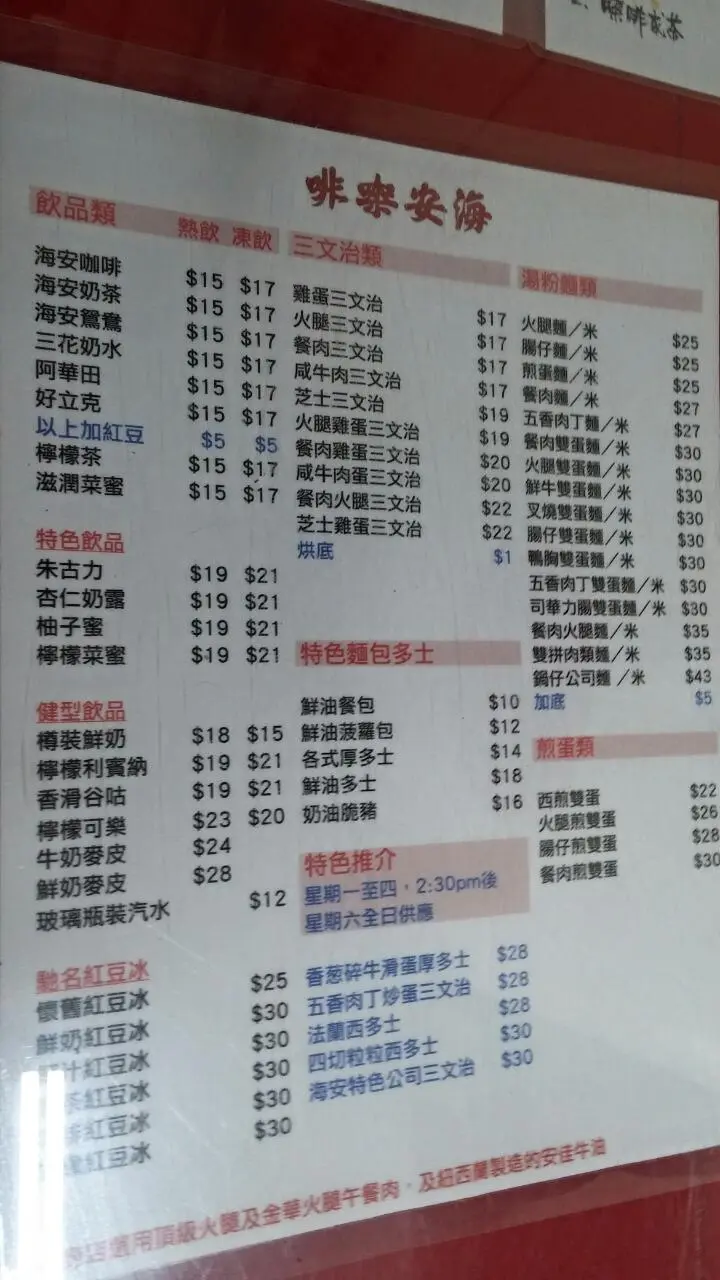 啡或茶
啡㗎安海
飲品類 熱飲 凍飲
海安咖啡 $15 $17
海安奶茶 $15 $17
海安鴛鴦 $15 $17
三花奶水 $15 $17
阿華田 $15 $17
好立克 $15 $17
以上加紅豆 $5 $5
檸檬茶 $15 $17
滋潤菜蜜 $15 $17
特色飲品
朱古力 $19 $21
杏仁奶露 $19 $21
柚子蜜 $19 $21
檸檬菜蜜 $19 $21
健型飲品
樽裝鮮奶 $18 $15
檸檬利賓納 $19 $21
香滑谷咕 $19 $21
檸檬可樂 $23 $20
牛奶麥皮 $24
鮮奶麥皮 $28
玻璃瓶裝汽水 $12
馳名紅豆冰
懷舊紅豆冰 $25
鮮奶紅豆冰 $30
汁紅豆冰 $30
茶紅豆冰 $30
啡紅豆冰 $30
紅豆冰 $30
三文治類
雞蛋三文治 $17
火腿三文治 $17
餐肉三文治 $17
咸牛肉三文治 $17
芝士三文治 $19
火腿雞蛋三文治 $19
餐肉雞蛋三文治 $20
咸牛肉蛋三文治 $20
餐肉火腿三文治 $22
芝士雞蛋三文治 $22
烘底 $1
特色麵包多士
鮮油餐包 $10
鮮油菠蘿包 $12
各式厚多士 $14
鮮油多士 $18
奶油脆豬 $16
特色推介
星期一至四，2:30pm後
星期六全日供應
香葱碎牛滑蛋厚多士 $28
五香肉丁炒蛋三文治 $28
法蘭西多士 $28
四切粒粒西多士 $30
海安特色公司三文治 $30
湯粉麵類
火腿麵／米 $25
腸仔麵／米 $25
煎蛋麵／米 $25
餐肉麵／米 $27
五香肉丁麵／米 $27
餐肉雙蛋麵／米 $30
火腿雙蛋麵／米 $30
鮮牛雙蛋麵／米 $30
叉燒雙蛋麵／米 $30
腸仔雙蛋麵／米 $30
鴨胸雙蛋麵／米 $30
五香肉丁雙蛋麵／米 $30
司華力腸雙蛋麵／米 $30
餐肉火腿麵／米 $35
雙拼肉類麵／米 $35
鍋仔公司麵／米 $43
加底 $5
煎蛋類
西煎雙蛋 $22
火腿煎雙蛋 $26
腸仔煎雙蛋 $28
餐肉煎雙蛋 $30
店選用頂級火腿及金華火腿午餐肉，及紐西蘭製造的安佳牛油